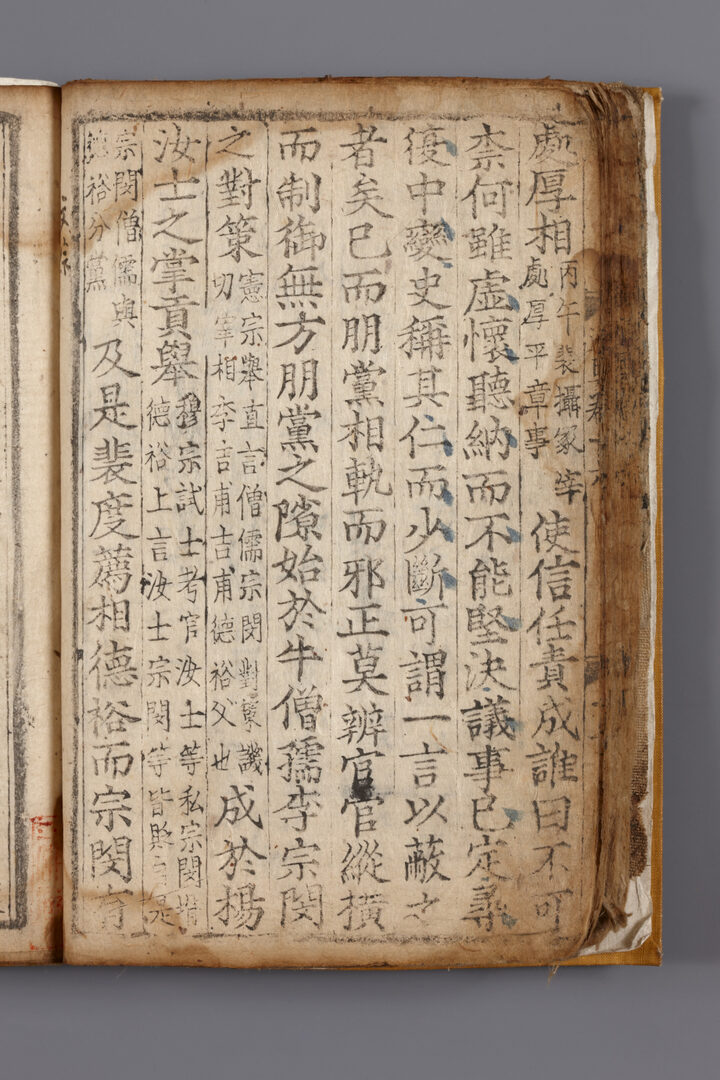 處厚相丙午裴攝冢宰
處厚平章事使信任責成誰曰不可
柰何雖虛懷聽納而不能堅決議事已定尋
復中變史稱其仁而少斷可謂一言以蔽之
者矣已而朋黨相軌而邪正莫辨官官縱橫
而制御無方朋黨之隙始於牛僧孺李宗閔
之對策憲宗舉直言僧儒宗閔對策譏
切宰相李吉甫吉甫德裕父也成於楊
汝士之掌貢舉穆宗試士考官汝士等私宗閔壻
德裕上言汝士宗閔等皆貶是
宗閔僧儒與
德裕分黨及是裴度薦相德裕而宗閔有